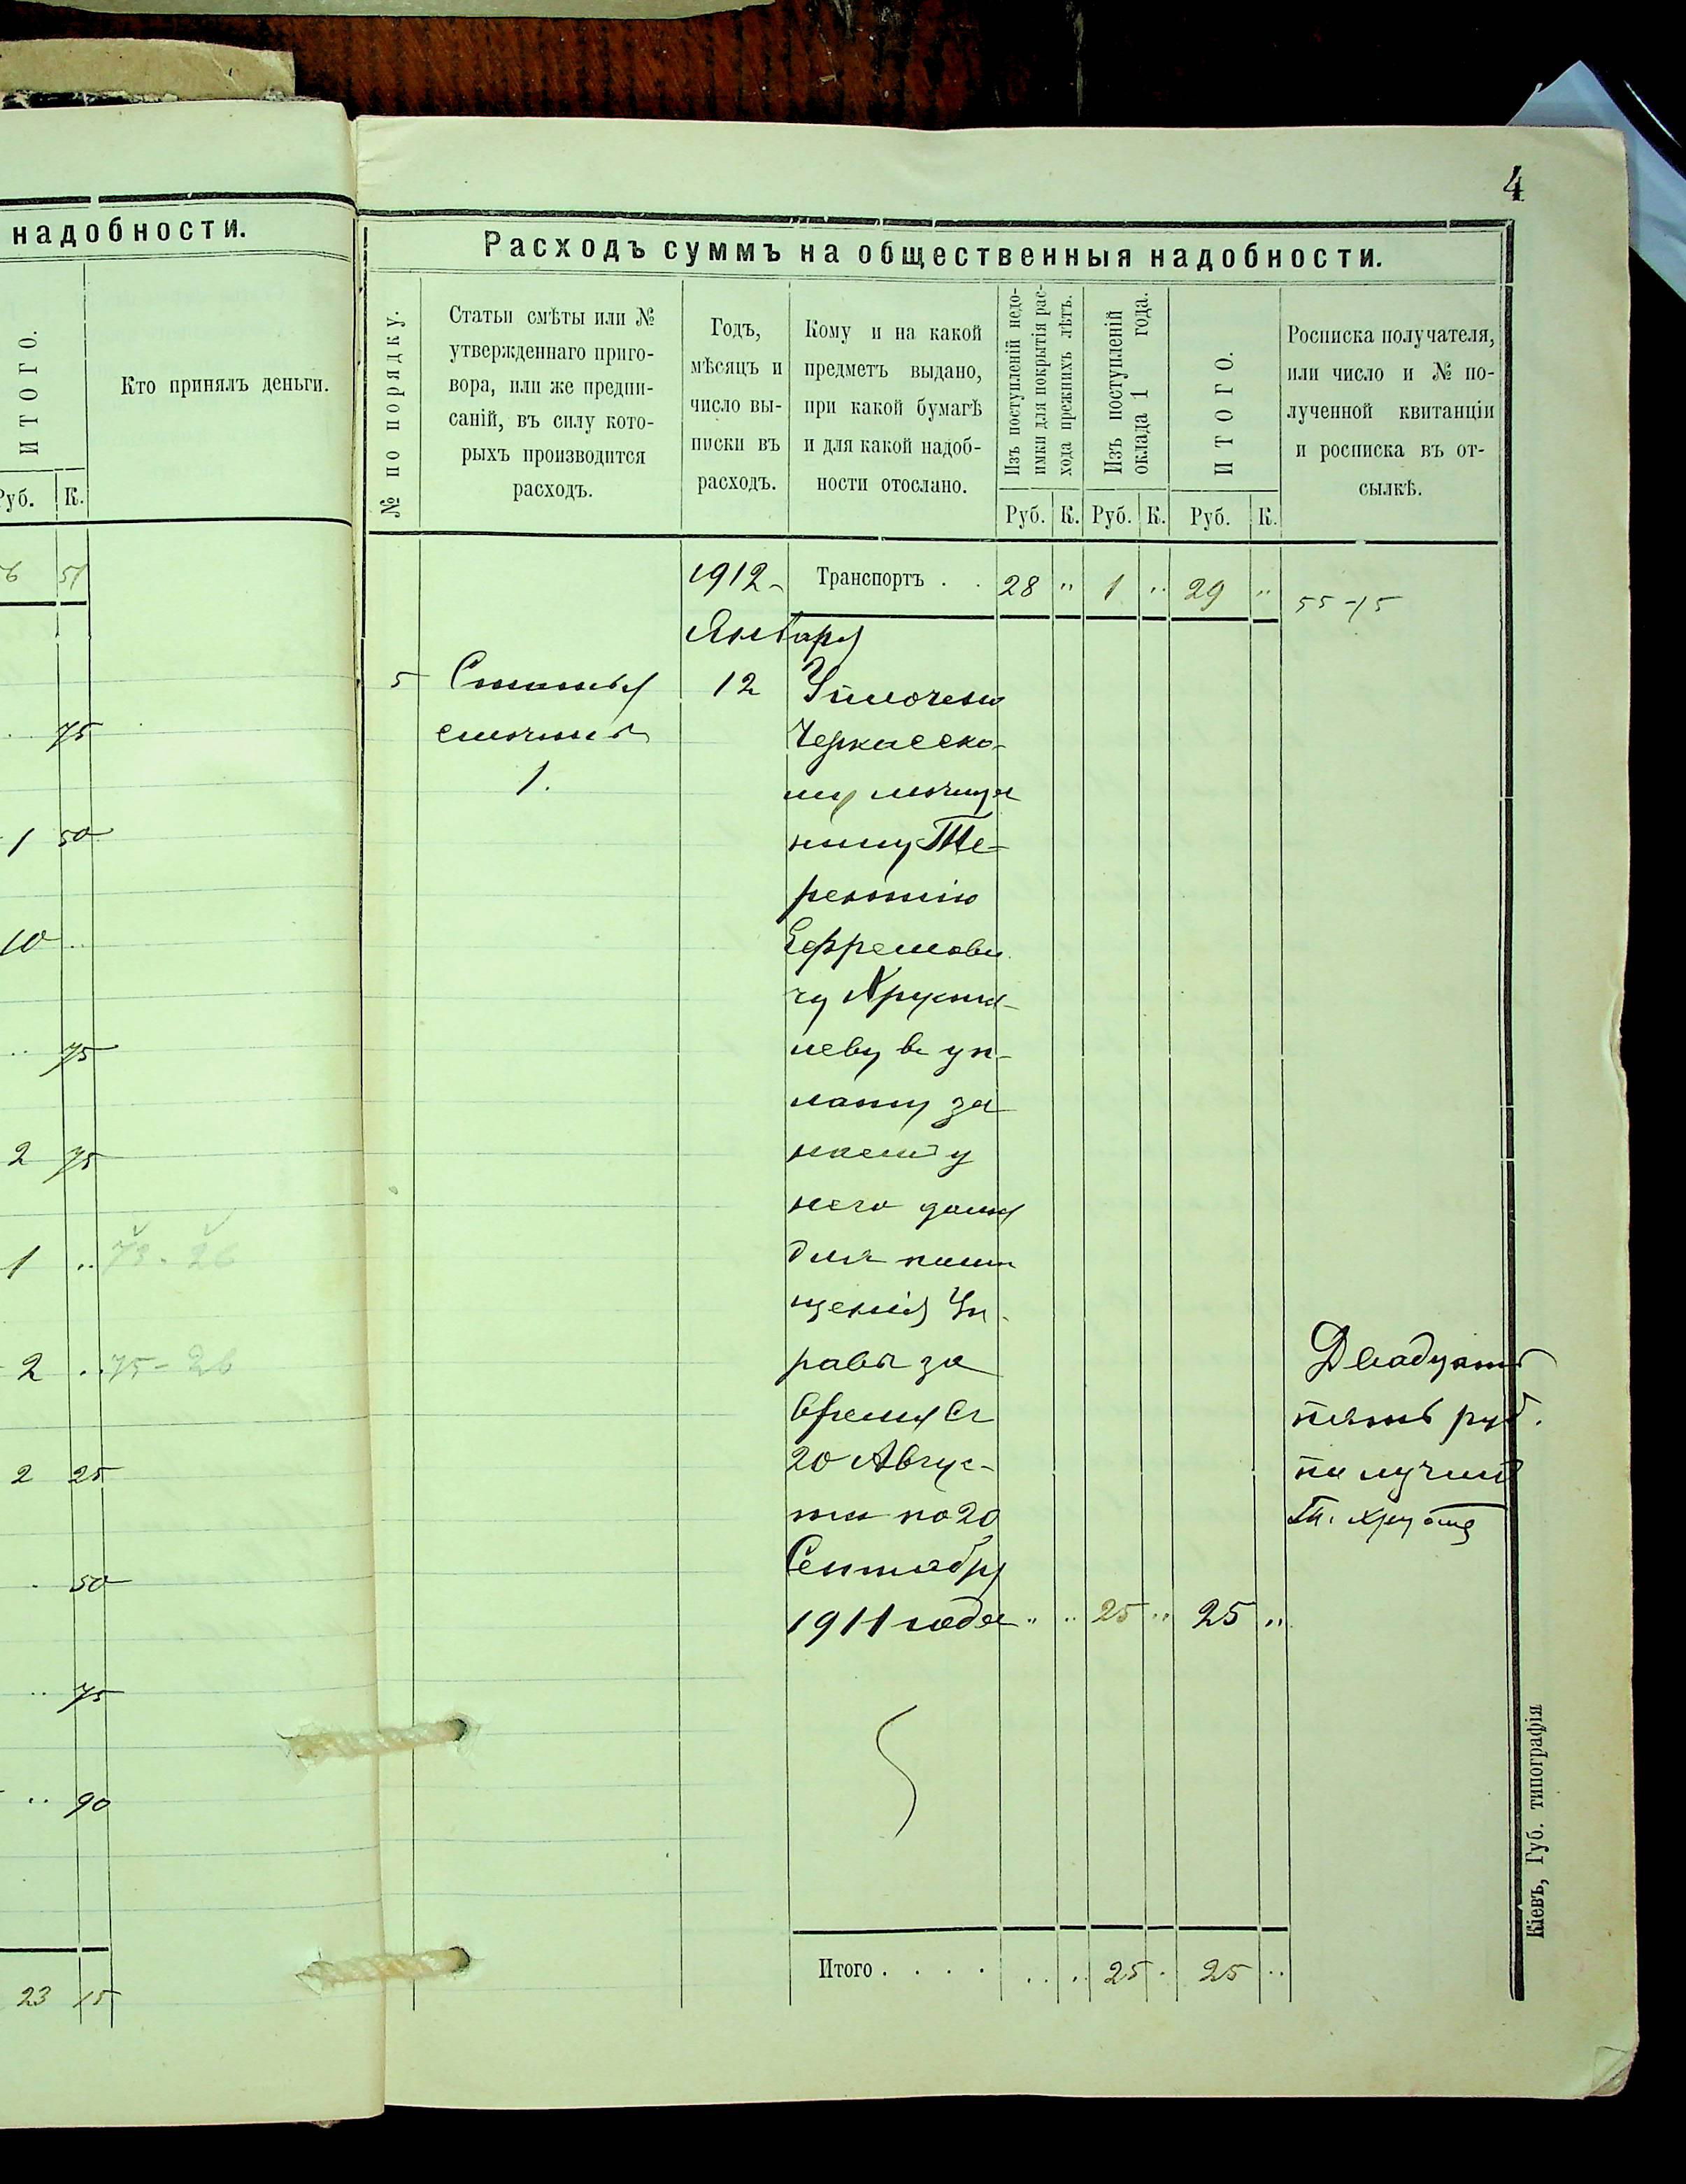 4
надобности.
ИТОГО.
Кто принялъ деньги.
Руб. К.
51
75
1 50
10 ..
.. 75
2 75
1 ..
2 .. 75-26
2 25
50
.. 75
.. 90
23 15
Расходъ суммъ на общественныя надобности.
№ по порядку.
Статьи смѣты или №
утвержденнаго приго-
вора, или же предпи-
саній, въ силу кото-
рыхъ производится
расходъ.
Годъ,
мѣсяцъ и
число вы-
писки въ
расходъ.
Кому и на какой
предметъ выдано,
при какой бумагѣ
и для какой надоб-
ности отослано.
Изъ поступленій недо-
имки для покрытія рас-
хода прежнихъ лѣтъ.
Изъ поступленій
оклада 1 года.
ИТОГО.
Росписка получателя,
или число и № по-
лученной квитанціи
и росписка въ от-
сылкѣ.
Руб. К. Руб. К. Руб. К.
1912 Транспортъ . . 28 " 1 " 29 " 55-15
Января
5 Статья 12 Уплочено
смѣты Черкасско-
1. му мѣща
нину Те-
рентію
Ефремови
чу
леву въ уп-
лату за
наемъ у
него дома
для помѣ
щенія Уп-
равы за
время съ
20 Авгус-
та по 20
Сентября
1911 года " .. 25 " 25 "
Двадцать
пять руб.
получилъ
Итого . . . . .. .. 25 . 25 ..
Кіевъ, Губ. типографія